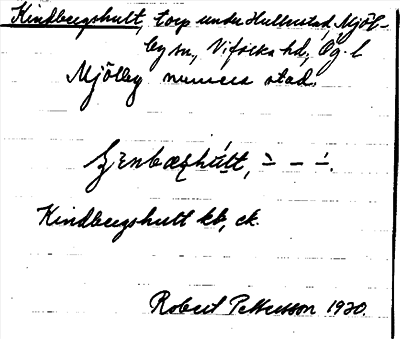 Kindbergshult, torp under Hulterstad, Mjöl-
by sn, Vifolka hd, Ög. l
Mjölby numera stad.
Kindbergshult kb, ek.
Robert Pettersson 1920.